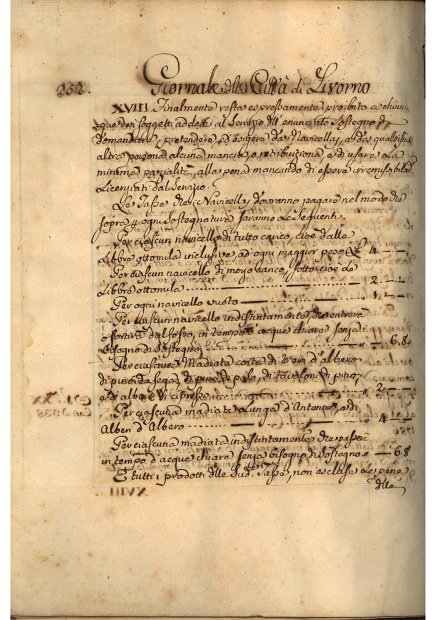 252.
Giornale della Città di Livorno
XVIII. Finalmente resta espressamente proibito a chiun,,
que dei soggetti addetti al Servizio dell' enunciato Sostegno di
domandare, pretendere, ed esigere da' Navicellai, o da qualsisia
altra persona alcuna mancia, o retribuzione, e di usare la
minima parzialità, alla pena mancando di essere irremissibilm.
Licenziati dal Servizio.
Le Tasse che i Navicellai dovranno pagare nel modo de
sopra p. ogni sostegnatura saranno le seguenti.
Per ciascun navicello di tutto carico, cioè dalle
Libbre ottomila inclusive, ad ogni maggior peso £ 4 . — . —
Per ciascun navicello di mezzo carico, sotto cioè le
Libbre ottomila — 2 . — . —
Per ogni navicello vuoto — 1 . — . —
Per ciascun navicello indistintamente, che entrerà
o sortirà dal fosso, in tempo d'acque chiare senza
bisogno di sostegno — . 6. 8
Per ciascuna madiata corta di travi d'albero
di piccola sega, di pino, di palo, di tavoloni di pino,
o di albero di cipresso —
Per ciascuna madiata lunga d'Antenne, o di
Alberi d'Albero — 4
Per ciascuna madiata indistintamente che passerà
in tempo d'acque chiare senza bisogno di sostegno — . 6. 8
E tutti i prodotti delle sud. Tasse, non escluse le pene
delle